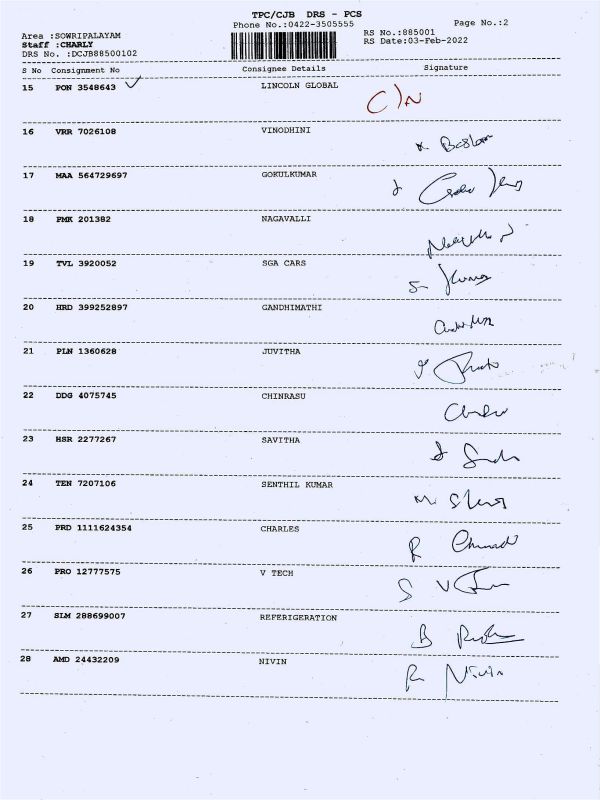 TPC/CJB DRS - PCS
Phone No.:0422-3505555 Page No.:2
Area :SOWRIPALAYAM RS No.:885001
Staff :CHARLY RS Date:03-Feb-2022
DRS No. :DCJB88500102
S No Consignment No Consignee Details Signature
15 PON 3548643 LINCOLN GLOBAL
16 VRR 7026108 VINODHINI
17 MAA 564729697 GOKULKUMAR
18 PMK 201382 NAGAVALLI
19 TVL 3920052 SGA CARS
20 HRD 399252897 GANDHIMATHI
21 PLN 1360628 JUVITHA
22 DDG 4075745 CHINRASU
23 HSR 2277267 SAVITHA
24 TEN 7207106 SENTHIL KUMAR
25 PRD 1111624354 CHARLES
26 PRO 12777575 V TECH
27 SLM 288699007 REFERIGERATION
28 AMD 24432209 NIVIN
Nivin